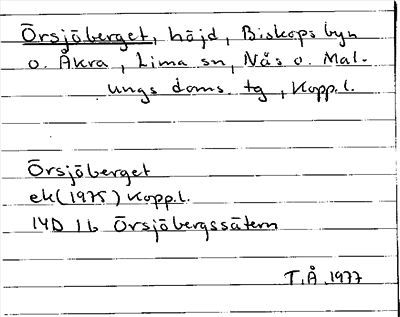 Örsjöberget, höjd, Biskopsbyn
o. Åkra, Lima sn, Nås o. Mal-
ungs doms. tg, Kopp.l.
Örsjöberget
ek(1975) Kopp.l.
14D 1b Örsjöbergssätern
T.Å. 1977